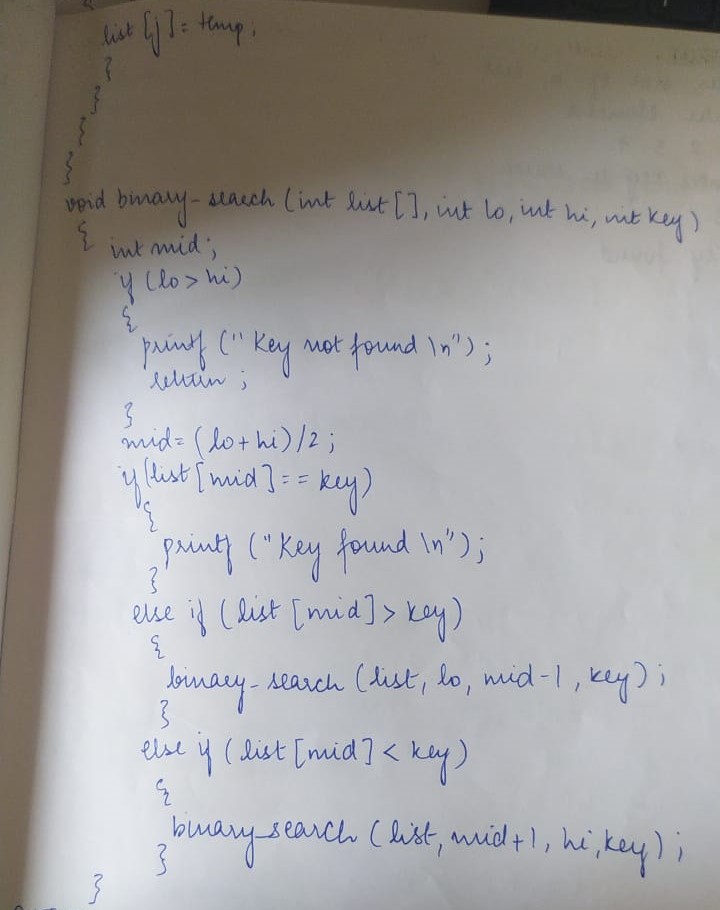 list [j] = temp;
}
}
}
}
void binary-search (int list [], int lo, int hi, int key)
{ int mid;
if (lo > hi)
{
printf (" Key not found \n");
return ;
}
mid = (lo + hi) /2 ;
if (list [mid] == key)
{
printf ("Key found \n");
}
else if (list [mid] > key)
{
binary-search (list, lo, mid-1, key) ;
}
else if (list [mid] < key)
{
binary_search (list, mid+1, hi, key) ;
}
}